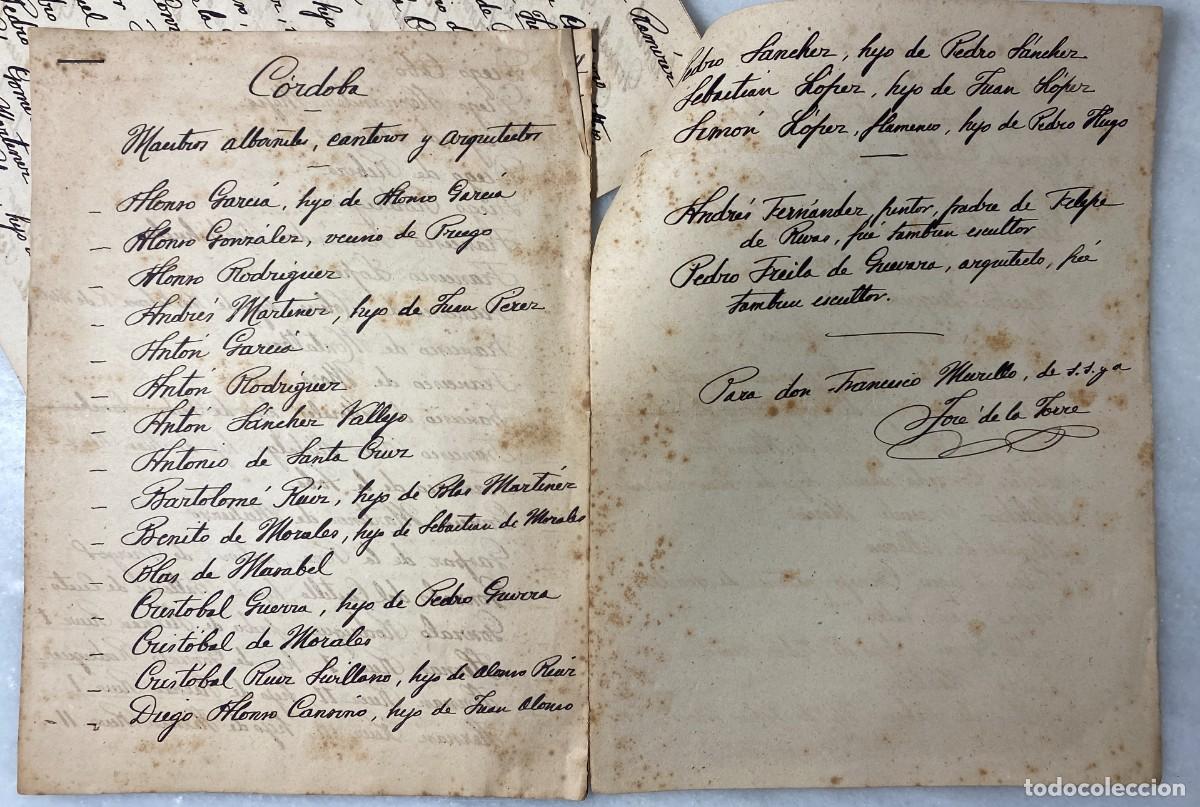 Córdoba
Maestros albañiles, canteros y arquitectos
Alonso García, hijo de Alonso García
Alonso González, vecino de Priego
Alonso Rodríguez
Andrés Martínez, hijo de Juan Pérez
Antón García
Antón Rodríguez
Antón Sánchez Vallejo
Antonio de Santa Cruz
Bartolomé Ruiz, hijo de Blas Martínez
Benito de Morales, hijo de Sebastián de Morales
Blas de Masabel
Cristóbal Guerra, hijo de Pedro Guerra
Cristóbal de Morales
Cristóbal Ruiz Sevillano, hijo de Alonso Ruiz
Diego Alonso Cansino, hijo de Juan Alonso
Pedro Sánchez, hijo de Pedro Sánchez
Sebastián López, hijo de Juan López
Simón López, flamenco, hijo de Pedro Hugo
Andrés Fernández, pintor, padre de Felipe
de Rivas, fué tambien escultor
Pedro Freila de Guevara, arquitecto, fué
tambien escultor.
Para don Francisco Murillo, de s.s. y a
José de la Torre
Ramírez
todocoleccion